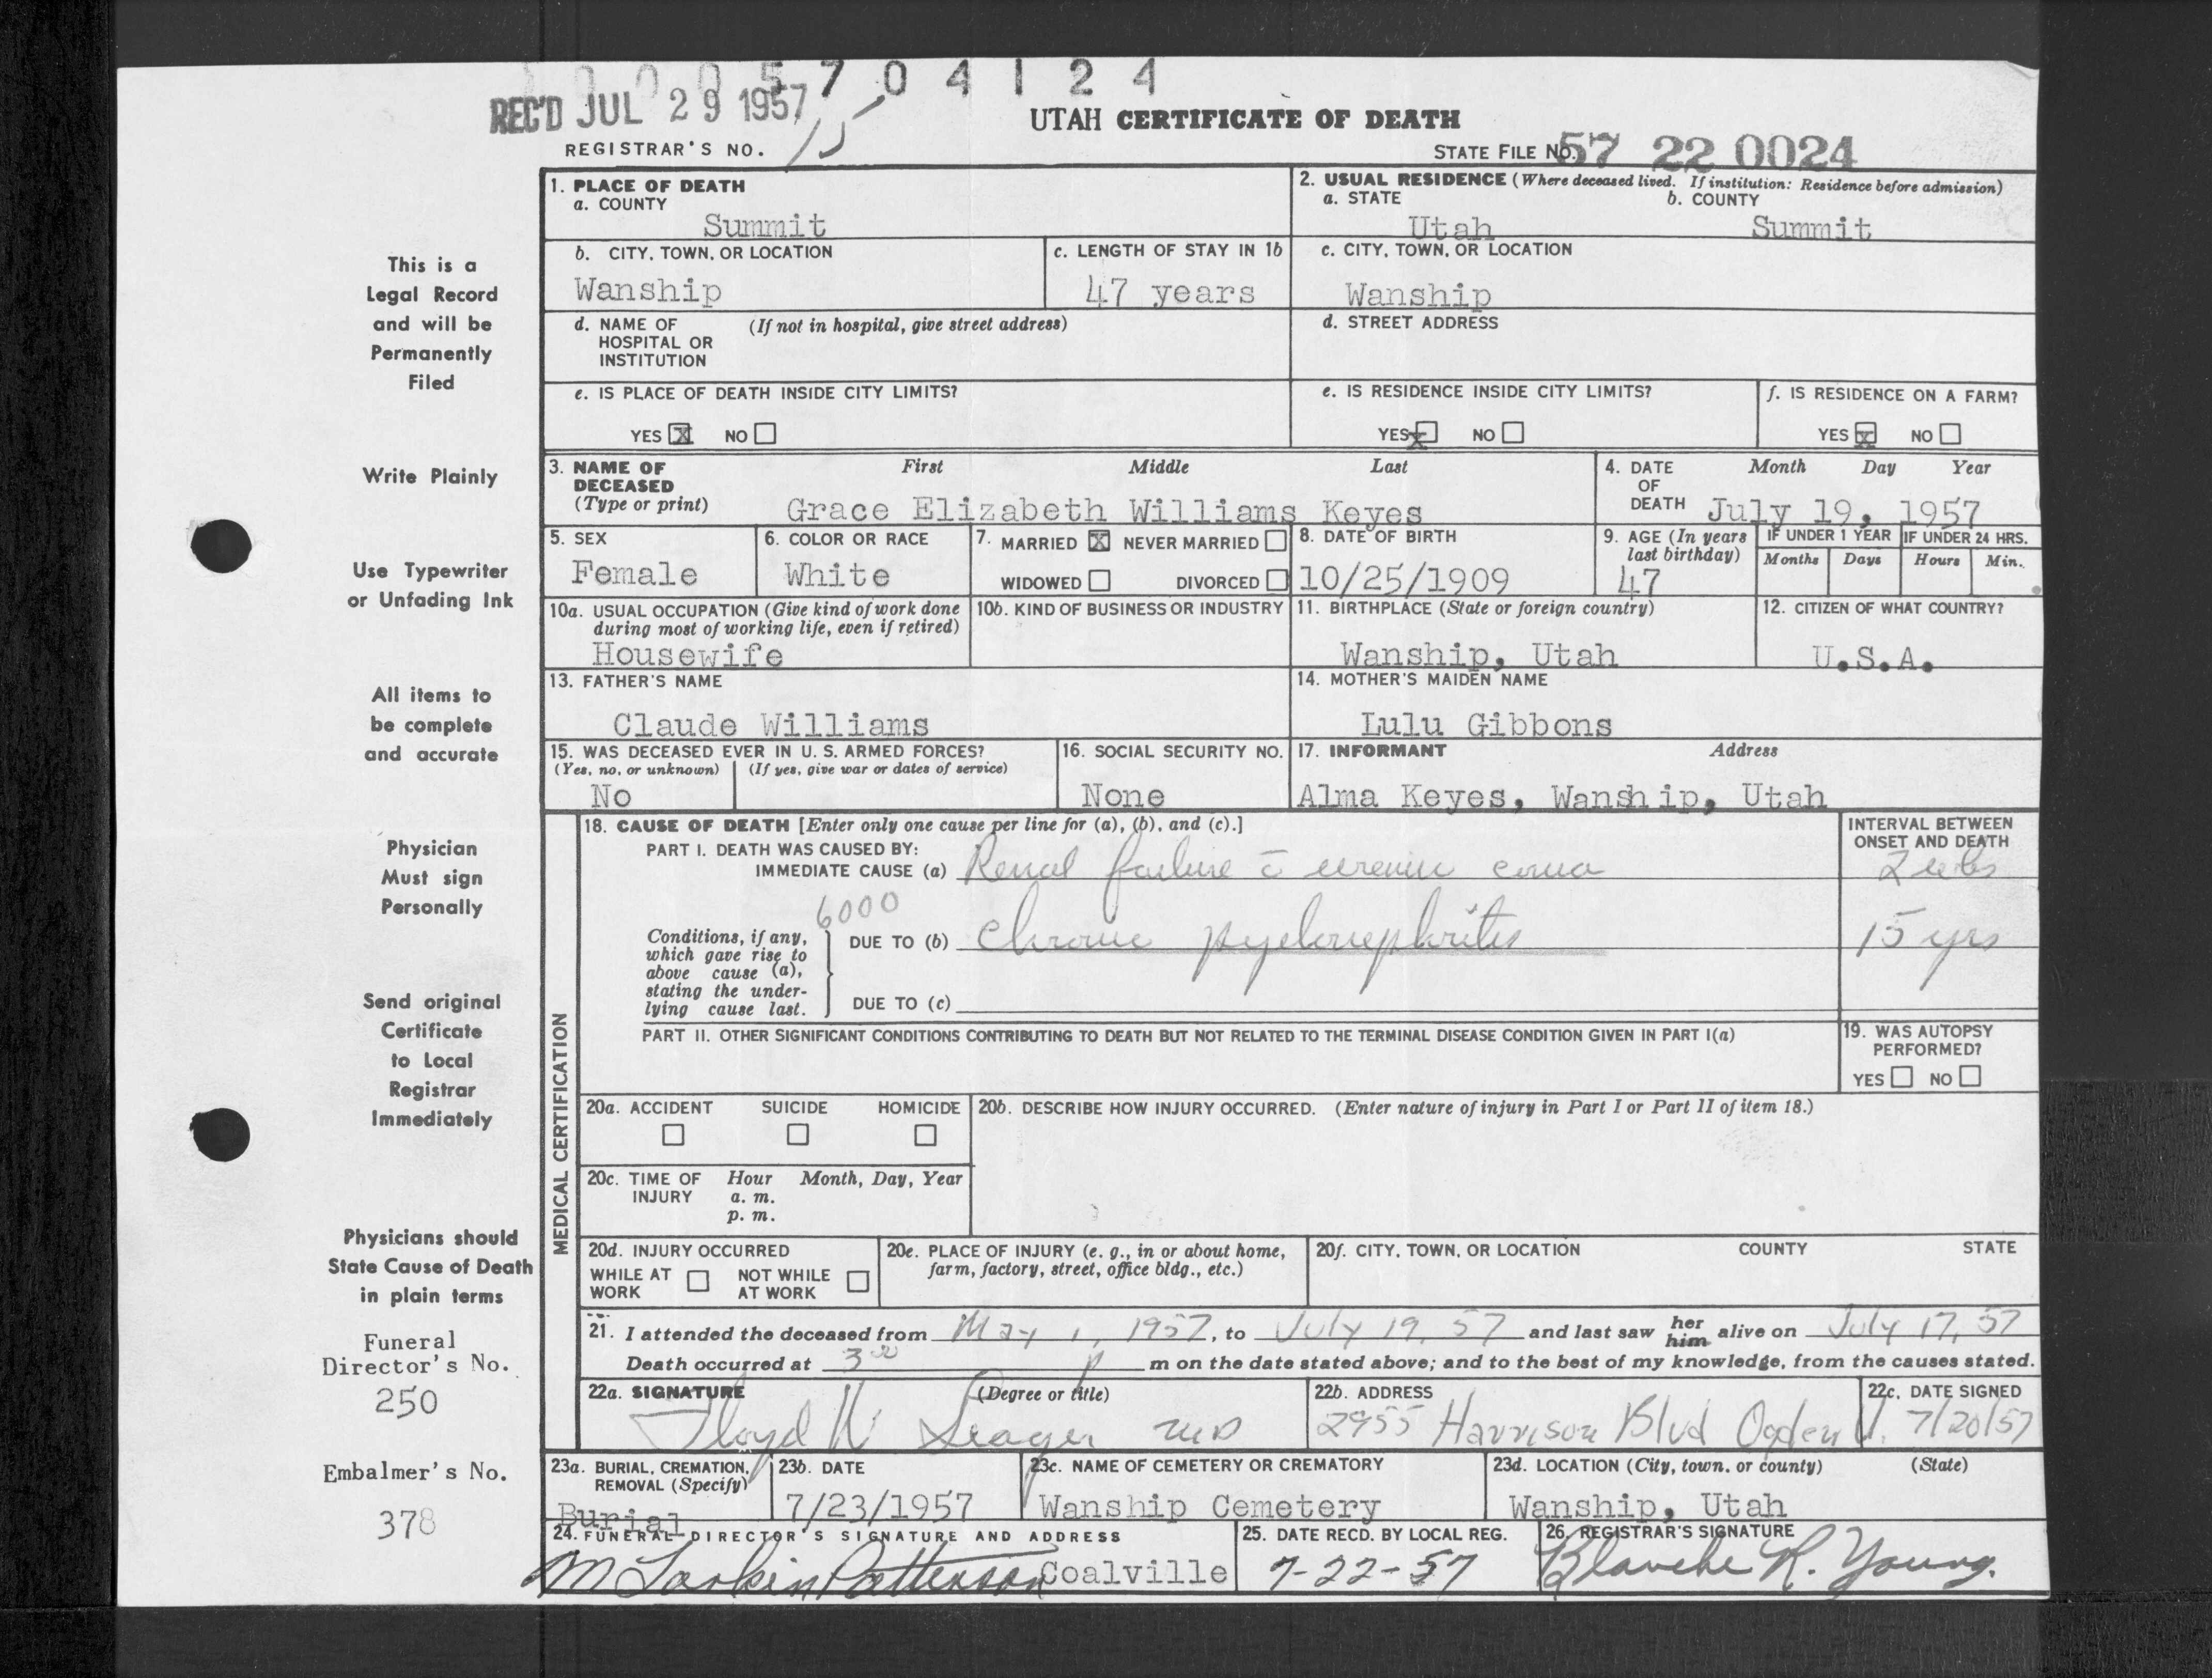 5 7 0 4 1 2 4
REC'D JUL 29 1957
UTAH CERTIFICATE OF DEATH
REGISTRAR'S NO. 15
STATE FILE NO. 57 22 0024
This is a
Legal Record
and will be
Permanently
Filed
Write Plainly
Use Typewriter
or Unfading Ink
All items to
be complete
and accurate
Physician
Must sign
Personally
Send original
Certificate
to Local
Registrar
Immediately
Physicians should
State Cause of Death
in plain terms
Funeral
Director's No.
250
Embalmer's No.
378
1. PLACE OF DEATH
a. COUNTY
Summit
2. USUAL RESIDENCE (Where deceased lived. If institution: Residence before admission)
a. STATE b. COUNTY
Utah Summit
b. CITY, TOWN, OR LOCATION
Wanship
c. LENGTH OF STAY IN 1b
47 years
c. CITY, TOWN, OR LOCATION
Wanship
d. NAME OF (If not in hospital, give street address)
HOSPITAL OR
INSTITUTION
d. STREET ADDRESS
e. IS PLACE OF DEATH INSIDE CITY LIMITS?
YES X NO
e. IS RESIDENCE INSIDE CITY LIMITS?
YES X NO
f. IS RESIDENCE ON A FARM?
YES X NO
3. NAME OF First Middle Last
DECEASED
(Type or print) Grace Elizabeth Williams Keyes
4. DATE Month Day Year
OF
DEATH July 19, 1957
5. SEX
Female
6. COLOR OR RACE
White
7. MARRIED X NEVER MARRIED
WIDOWED DIVORCED
8. DATE OF BIRTH
10/25/1909
9. AGE (In years
last birthday)
47
IF UNDER 1 YEAR IF UNDER 24 HRS.
Months Days Hours Min.
10a. USUAL OCCUPATION (Give kind of work done
during most of working life, even if retired)
Housewife
10b. KIND OF BUSINESS OR INDUSTRY
11. BIRTHPLACE (State or foreign country)
Wanship, Utah
12. CITIZEN OF WHAT COUNTRY?
U.S.A.
13. FATHER'S NAME
Claude Williams
14. MOTHER'S MAIDEN NAME
Lulu Gibbons
15. WAS DECEASED EVER IN U. S. ARMED FORCES?
(Yes, no, or unknown) (If yes, give war or dates of service)
No
16. SOCIAL SECURITY NO.
None
17. INFORMANT Address
Alma Keyes, Wanship, Utah
MEDICAL CERTIFICATION
18. CAUSE OF DEATH [Enter only one cause per line for (a), (b), and (c).]
INTERVAL BETWEEN
ONSET AND DEATH
PART I. DEATH WAS CAUSED BY:
IMMEDIATE CAUSE (a) Renal failure c̄ uremic coma 2 wks
6000
Conditions, if any,
which gave rise to
above cause (a),
stating the under-
lying cause last.
DUE TO (b) Chronic pyelonephritis 15 yrs
DUE TO (c)
PART II. OTHER SIGNIFICANT CONDITIONS CONTRIBUTING TO DEATH BUT NOT RELATED TO THE TERMINAL DISEASE CONDITION GIVEN IN PART I(a)
19. WAS AUTOPSY
PERFORMED?
YES NO
20a. ACCIDENT SUICIDE HOMICIDE
20b. DESCRIBE HOW INJURY OCCURRED. (Enter nature of injury in Part I or Part II of item 18.)
20c. TIME OF Hour Month, Day, Year
INJURY a. m.
p. m.
20d. INJURY OCCURRED
WHILE AT NOT WHILE
WORK AT WORK
20e. PLACE OF INJURY (e. g., in or about home,
farm, factory, street, office bldg., etc.)
20f. CITY, TOWN, OR LOCATION COUNTY STATE
21. I attended the deceased from May 1, 1957, to July 19, 57 and last saw her him alive on July 17, 57
Death occurred at 3 00 p m on the date stated above; and to the best of my knowledge, from the causes stated.
22a. SIGNATURE (Degree or title)
Floyd W Seager MD
22b. ADDRESS
2955 Harrison Blvd Ogden U.
22c. DATE SIGNED
7/20/57
23a. BURIAL, CREMATION,
REMOVAL (Specify)
Burial
23b. DATE
7/23/1957
23c. NAME OF CEMETERY OR CREMATORY
Wanship Cemetery
23d. LOCATION (City, town, or county) (State)
Wanship, Utah
24. FUNERAL DIRECTOR'S SIGNATURE AND ADDRESS
M Larkin Patterson Coalville
25. DATE RECD. BY LOCAL REG.
7-22-57
26. REGISTRAR'S SIGNATURE
Blanche R. Young.